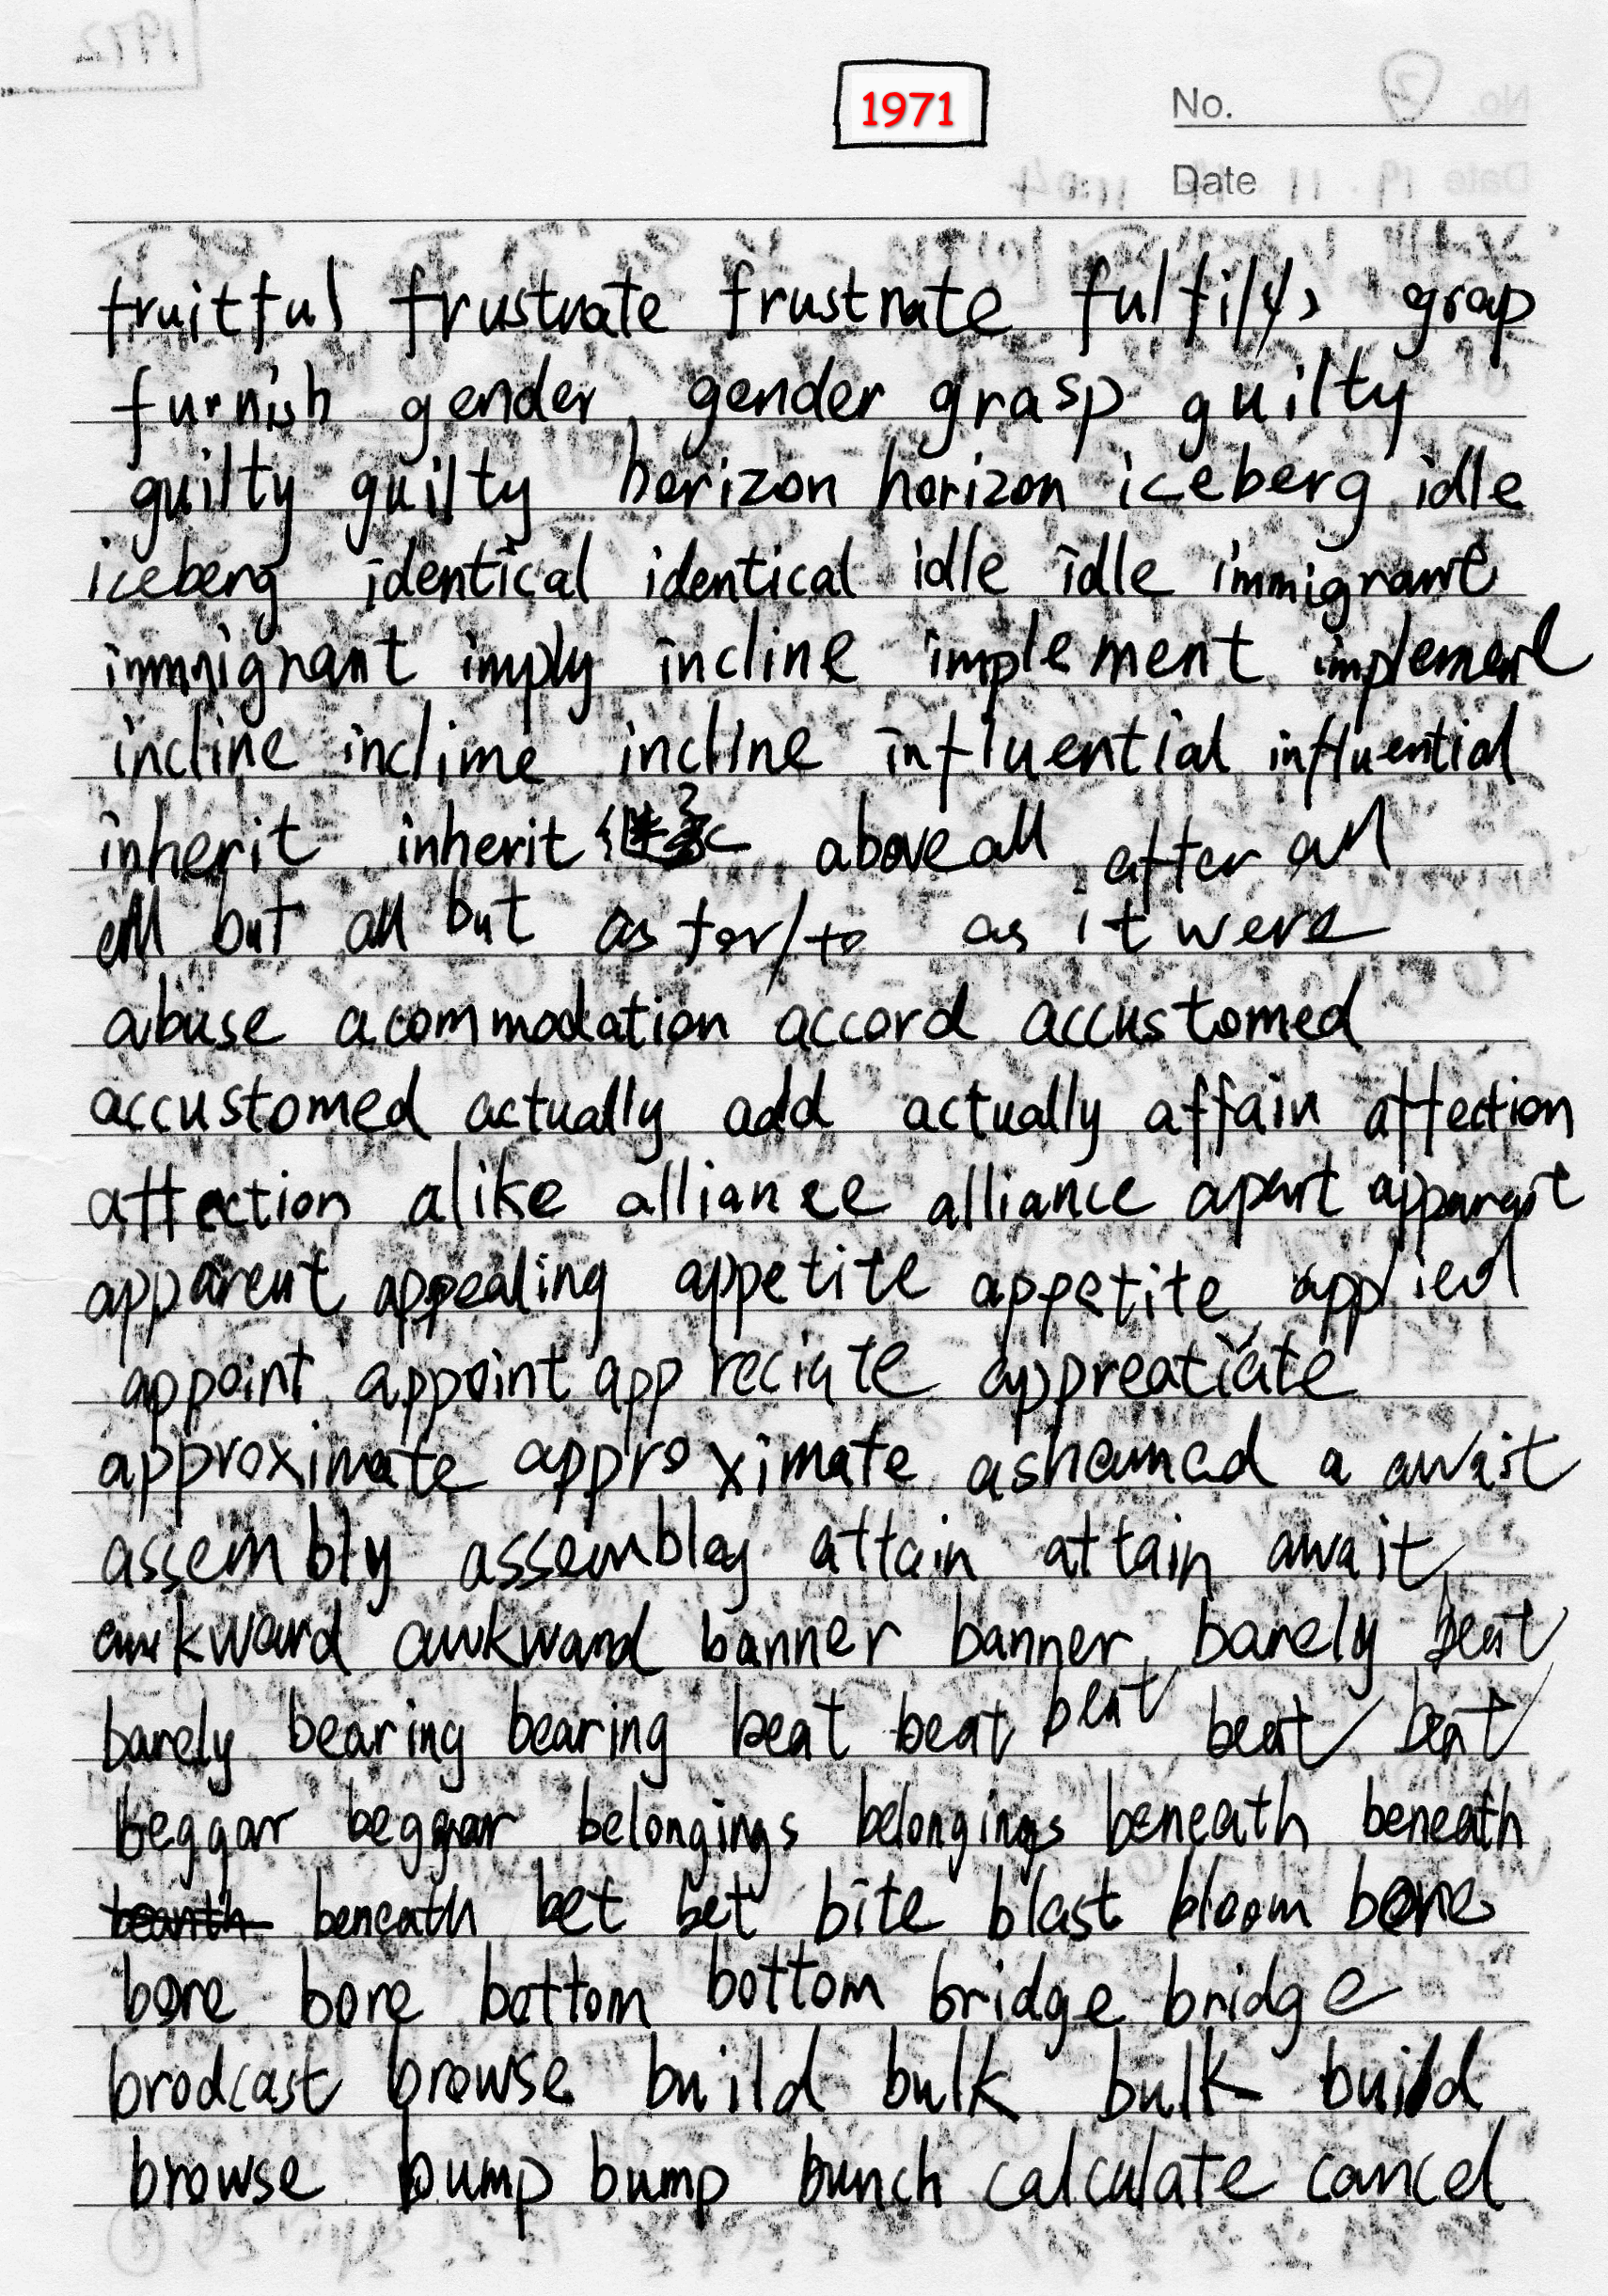 1971
No.
Date
fruitful frustrate frustrate fulfil grap
furnish gender gender grasp guilty
guilty guilty horizon horizon iceberg idle
iceberg identical identical idle idle immigrant
immigrant imply incline implement implement
incline inclime incline influential influential
inherit inherit above all after all
all but all but as for/to as it were
abuse acommodation accord accustomed
accustomed actually add actually affair affection
affection alike alliance alliance apart apparent
apparent appealing appetite appetite applied
appoint appoint appreciate appreatiate
approximate approximate ashamed a await
assembly assembley attain attain await
awkward awkward banner banner barely beat
barely bearing bearing beat beat beat beat beat
beggar beggar belongings belongings beneath beneath
beneath bet bet bite blast bloom bore
bore bore bottom bottom bridge bridge
brodcast browse build bulk bulk build
browse bump bump bunch calculate cancel